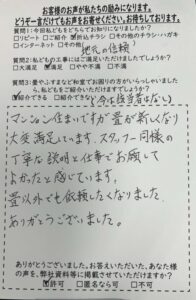 お客様の声が私たちの励みになります。
どうぞ一言だけでもお声をお寄せください。お待ちしております。
質問1:今回私どもをどちらでお知りになりましたか?
□リピート □ご紹介 ☑折込チラシ □その他のチラシ・ハガキ
□インターネット □その他( 地元の信頼 )
質問2:私どもの工事にはご満足いただけましたでしょうか?
□大満足 ☑満足 □やや不満 □不満
質問3:畳やふすまなど和室でお困りの方がいらっしゃいましたら、私どもをご紹介いただけますでしょうか?
☑紹介できる □紹介できない (今は該当者はなし)
マンション住いですが畳が新しくなり
大変満足しています。スタッフ一同様の
丁寧な説明と仕事でお願して
よかったと感じています。
畳以外でも依頼したくなりました
ありがとうございました。
ありがとうございました。お答えいただいた、あなた様
の声を、弊社資料等に掲載させていただけますか?
☑許可 □匿名なら可 □不可